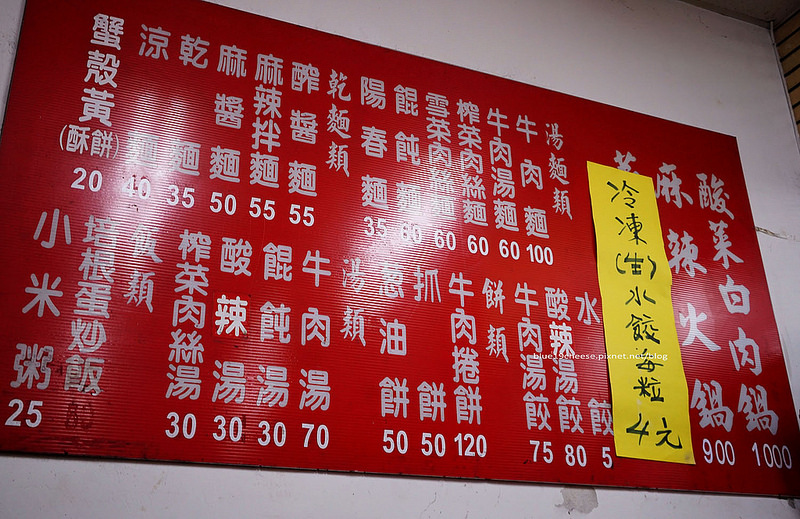 酸菜白肉鍋 1000
麻辣火鍋 900
冷凍(生)水餃每粒4元
湯麵類
牛肉麵 100
牛肉湯麵 60
榨菜肉絲麵 60
雪菜肉絲麵 60
餛飩麵 60
陽春麵 35
乾麵類
醡醬麵 55
麻辣拌麵 55
麻醬麵 50
乾麵 35
涼麵 40
蟹殼黃(酥餅) 20
水餃 5
酸辣湯餃 80
牛肉湯餃 75
餅類
牛肉捲餅 120
抓餅 50
蔥油餅 50
湯類
牛肉湯 70
餛飩湯 30
酸辣湯 30
榨菜肉絲湯 30
飯類
培根蛋炒飯
小米粥 25
blue19cheese.pixnet.net/blog